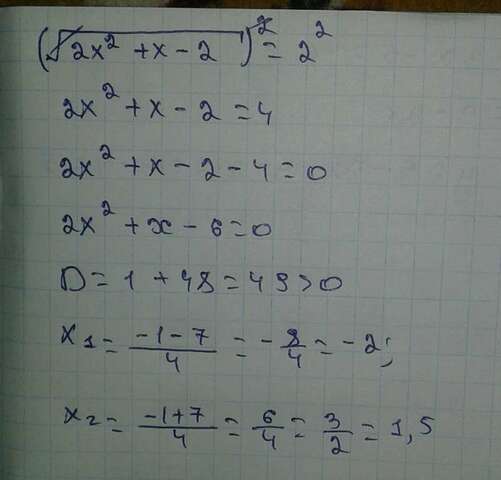 (√(2x² + x - 2))² = 2²
2x² + x - 2 = 4
2x² + x - 2 - 4 = 0
2x² + x - 6 = 0
D = 1 + 48 = 49 > 0
x₁ = (-1 - 7)/4 = -8/4 = -2;
x₂ = (-1 + 7)/4 = 6/4 = 3/2 = 1,5